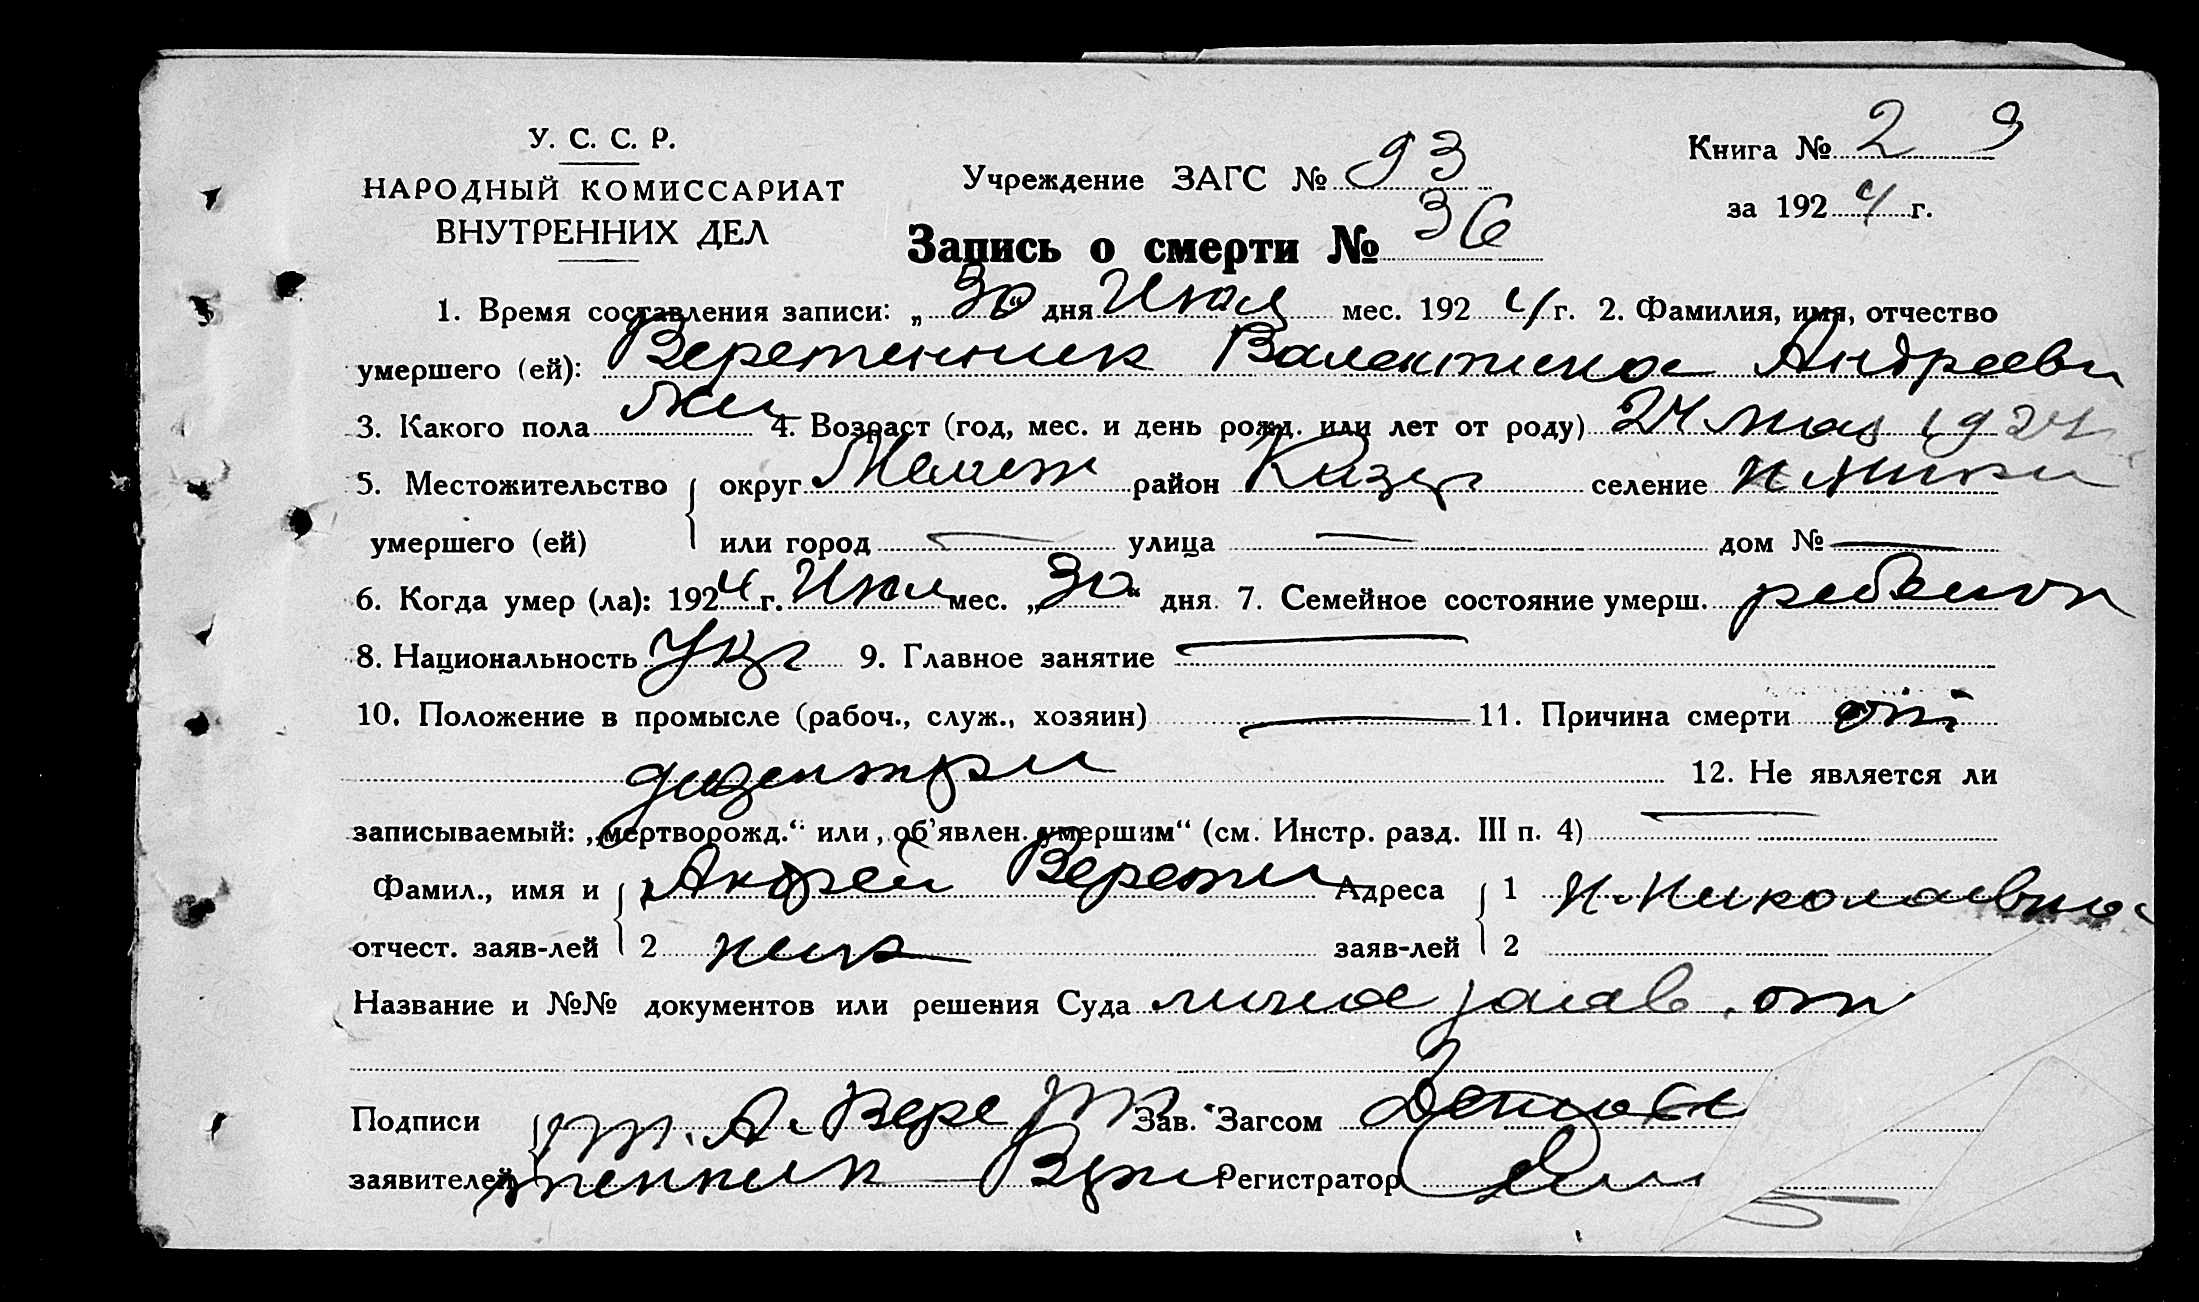 У. С. С. Р.
НАРОДНЫЙ КОМИССАРИАТ
ВНУТРЕННИХ ДЕЛ
Учреждение ЗАГС № 93
Книга № 2 9
за 1924 г.
Запись о смерти № 36
1. Время составления записи: „30“ дня Июля мес. 1924 г. 2. Фамилия, имя, отчество
умершего (ей): Веретенник Валентина Андреевн
3. Какого пола Жен 4. Возраст (год, мес. и день рожд. или лет от роду) 24 мая 1924
5. Местожительство округ район селение
умершего (ей) или город — улица — дом № —
6. Когда умер (ла): 1924 г. Июля мес. „30“ дня 7. Семейное состояние умерш. ребенок
8. Национальность Укр 9. Главное занятие —
10. Положение в промысле (рабоч., служ., хозяин) — 11. Причина смерти от
дизентри 12. Не является ли
записываемый: „мертворожд.“ или „об'явлен. умершим“ (см. Инстр. разд. III п. 4) —
Фамил., имя и 1 Андрей Верете Адреса 1 Н. Николаевка
отчест. заяв-лей 2 ник заяв-лей 2
Название и №№ документов или решения Суда личное заяв. от
Подписи А. Вере Зав. Загсом
заявителей тенник Регистратор